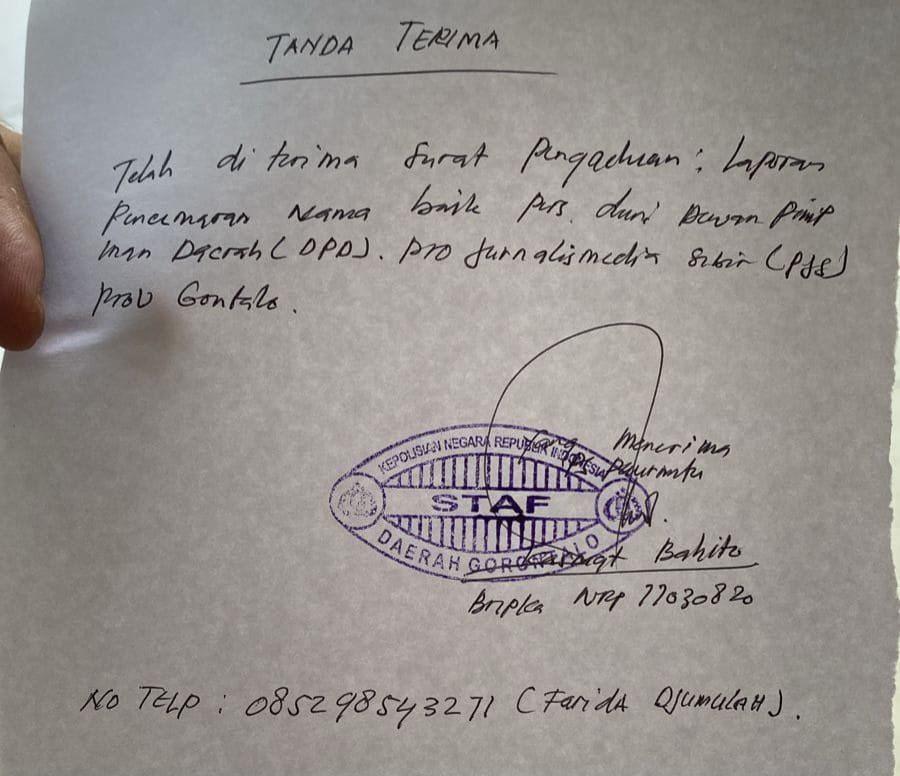 TANDA TERIMA
Telah di terima Surat Pengaduan : Laporan
Pencemaran Nama baik pers. duni Dewan Pimp
inan Daerah (DPD). Pro Jurnalismedia Sibir (PJS)
prov Gontalo.
Yang Menerima
KEPOLISIAN NEGARA REPUBLIK INDONESIA
STAF
DAERAH GORONTALO
Bahito
Bripka NRP 77030820
No TELP : 085298543271 (Farida DJumulaH).